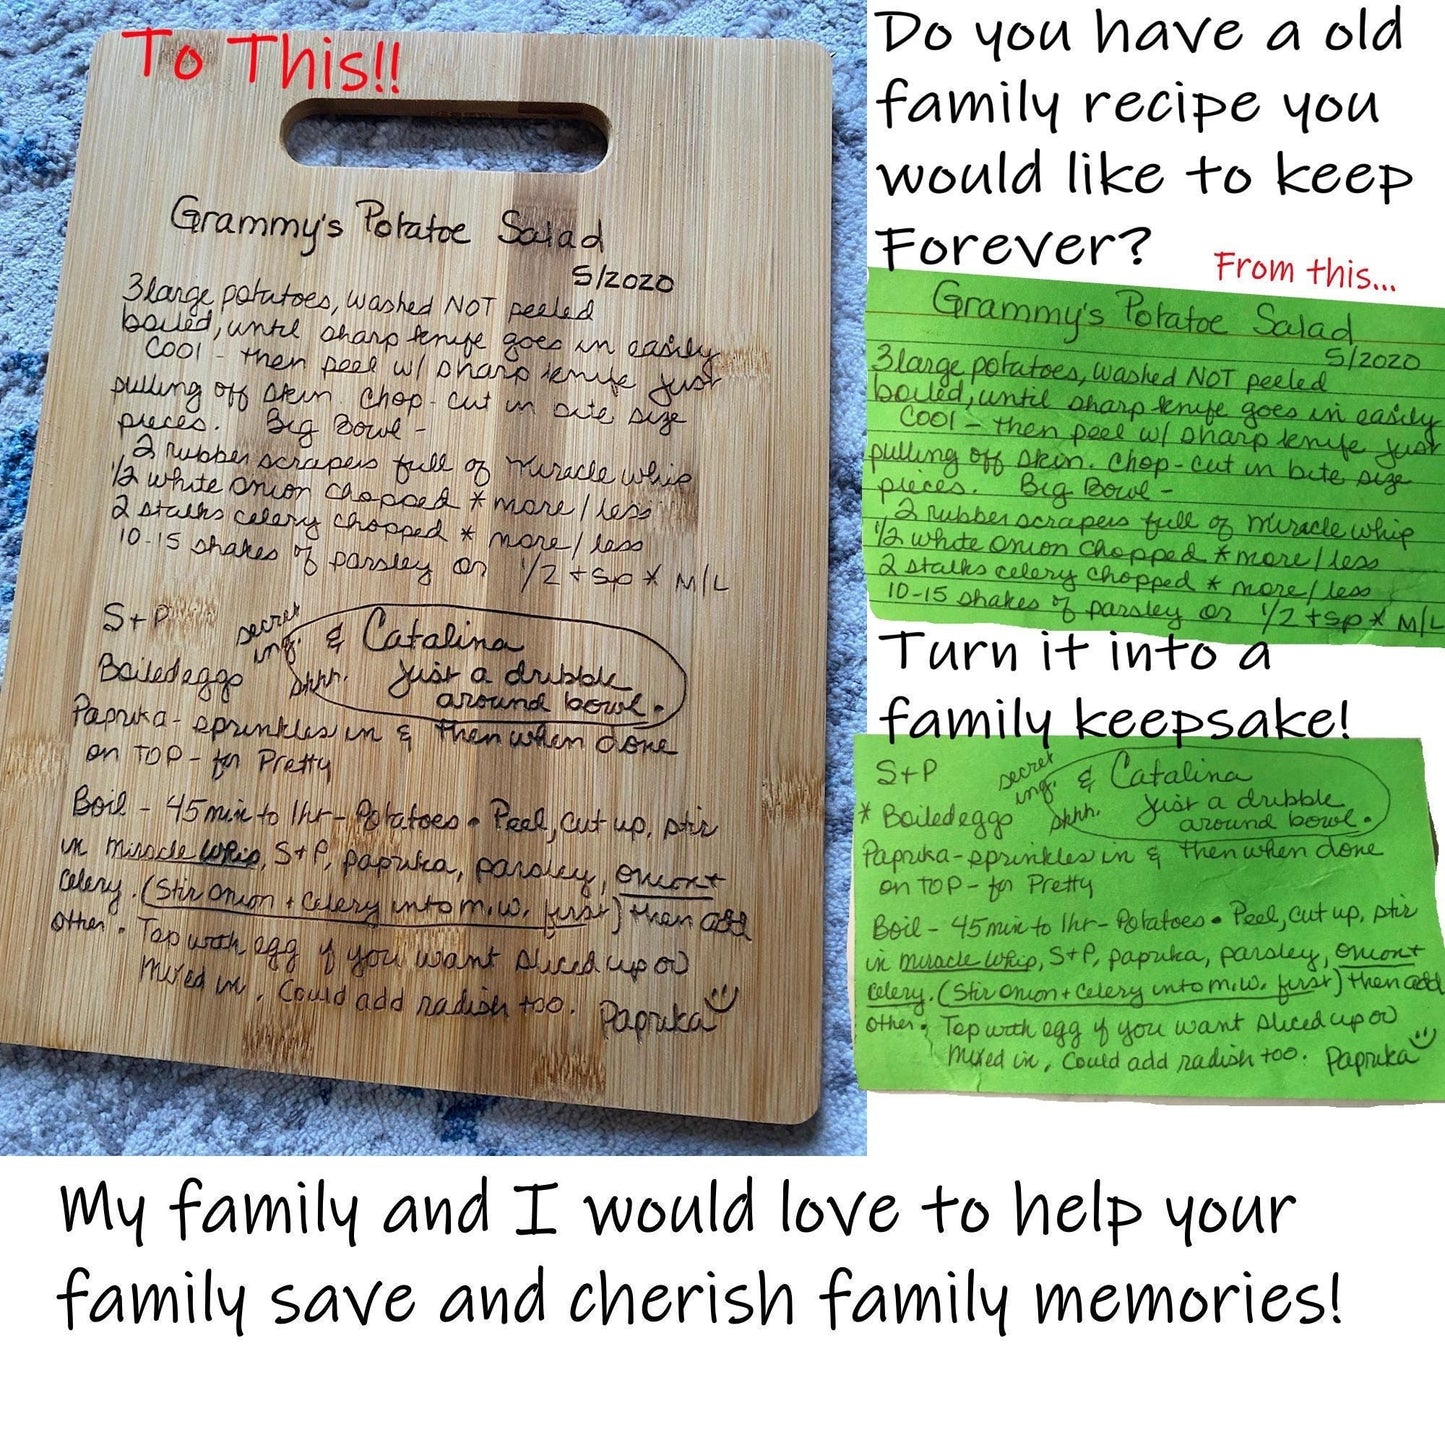 To This!!
Grammy's Potatoe Salad
5/2020
3 large potatoes, washed NOT peeled
boiled, until sharp knife goes in easily
Cool - then peel w/ sharp knife just
pulling off skin. Chop - cut in bite size
pieces. Big Bowl -
2 rubber scrapers full of miracle whip
1/2 white onion chopped * more / less
2 stalks celery chopped * more / less
10-15 shakes of parsley or 1/2 tsp * M/L
S+P
secret ing. shhh.
& Catalina
just a dribble
around bowl.
Boiled eggs
Paprika - sprinkles in & then when done
on TOP - for Pretty
Boil - 45 min to 1hr - Potatoes • Peel, cut up, stir
in miracle whip, S+P, paprika, parsley, onion +
celery. (Stir onion + celery into m.w. first) then add
other. Top with egg if you want sliced up or
mixed in, Could add radish too. Paprika
Do you have a old
family recipe you
would like to keep
Forever?
From this...
Grammy's Potatoe Salad
5/2020
3 large potatoes, washed NOT peeled
boiled, until sharp knife goes in easily
Cool - then peel w/ sharp knife just
pulling off skin. Chop - cut in bite size
pieces. Big Bowl -
2 rubber scrapers full of miracle whip
1/2 white onion chopped * more / less
2 stalks celery chopped * more / less
10-15 shakes of parsley or 1/2 tsp * M/L
Turn it into a
family keepsake!
S+P
secret ing. shhh.
& Catalina
just a dribble
around bowl.
* Boiled eggs
Paprika - sprinkles in & then when done
on TOP - for Pretty
Boil - 45 min to 1hr - Potatoes • Peel, cut up, stir
in miracle whip, S+P, paprika, parsley, onion +
celery. (Stir onion + celery into m.w. first) then add
other. Top with egg if you want sliced up or
mixed in, Could add radish too. Paprika
My family and I would love to help your
family save and cherish family memories!